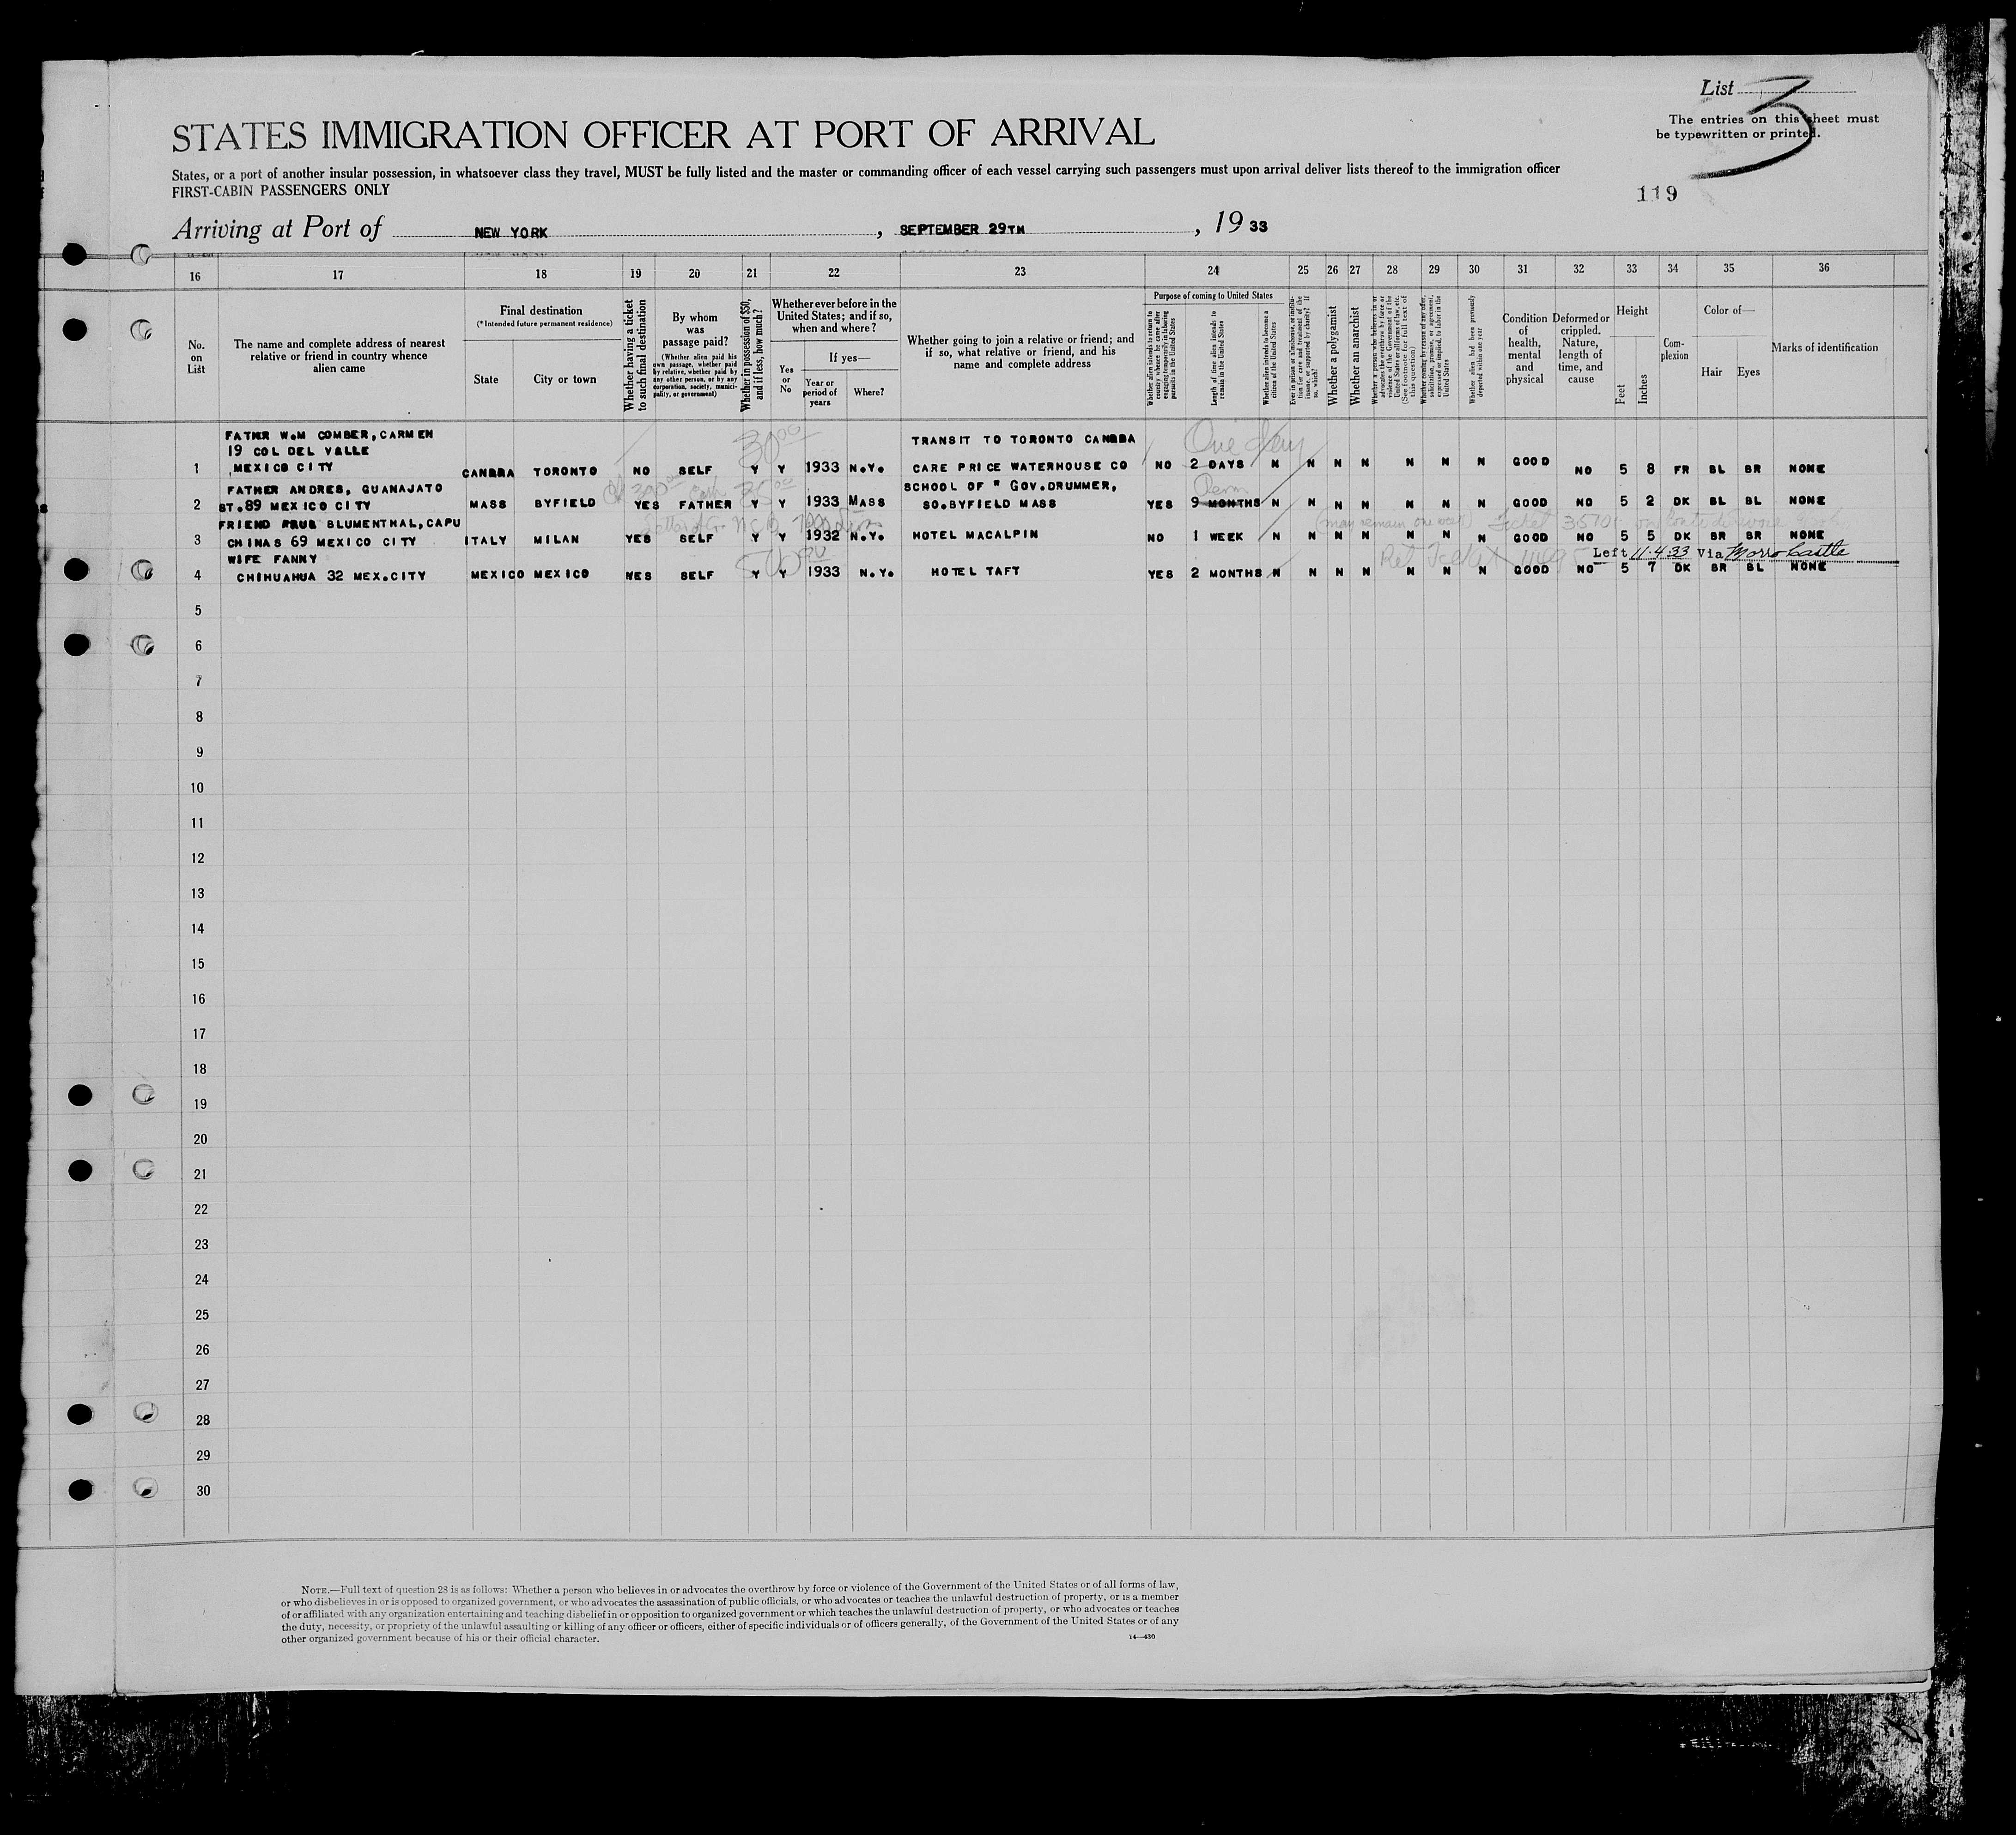 List 3
The entries on this sheet must
be typewritten or printed.
STATES IMMIGRATION OFFICER AT PORT OF ARRIVAL
States, or a port of another insular possession, in whatsoever class they travel, MUST be fully listed and the master or commanding officer of each vessel carrying such passengers must upon arrival deliver lists thereof to the immigration officer
FIRST-CABIN PASSENGERS ONLY
119
Arriving at Port of NEW YORK, SEPTEMBER 29TH, 1933
16 17 18 19 20 21 22 23 24 25 26 27 28 29 30 31 32 33 34 35 36
No. on List
The name and complete address of nearest relative or friend in country whence alien came
Final destination
(*Intended future permanent residence)
State City or town
Whether having a ticket to such final destination
By whom was passage paid?
(Whether alien paid his own passage, whether paid by relative, whether paid by any other person, or by any corporation, society, municipality, or government)
Whether in possession of $50, and if less, how much?
Whether ever before in the United States; and if so, when and where?
If yes—
Yes or No
Year or period of years
Where?
Whether going to join a relative or friend; and if so, what relative or friend, and his name and complete address
Purpose of coming to United States
Whether alien intends to return to country whence he came after engaging temporarily in laboring pursuits in the United States
Length of time alien intends to remain in the United States
Whether alien intends to become a citizen of the United States
Ever in prison or almshouse, or institution for care and treatment of the insane, or supported by charity? If so, which?
Whether a polygamist
Whether an anarchist
Whether a person who believes in or advocates the overthrow by force or violence of the Government of the United States or all forms of law, etc. (See footnote for full text of this question)
Whether coming by reason of any offer, solicitation, promise, or agreement, expressed or implied, to labor in the United States
Whether alien had been previously deported within one year
Condition of health, mental and physical
Deformed or crippled. Nature, length of time, and cause
Height
Feet Inches
Complexion
Color of—
Hair Eyes
Marks of identification
FATHER W.M COMBER, CARMEN
19 COL DEL VALLE
30 00
TRANSIT TO TORONTO CANADA
One day
1 MEXICO CITY CANADA TORONTO NO SELF Y Y 1933 N.Y. CARE PRICE WATERHOUSE CO NO 2 DAYS N N N N N N N GOOD NO 5 8 FR BL BR NONE
FATHER ANDRES, GUANAJATO
cash 35 00
SCHOOL OF " GOV.DRUMMER,
Perm
2 ST.89 MEXICO CITY MASS BYFIELD YES FATHER Y Y 1933 MASS SO.BYFIELD MASS YES 9 MONTHS N N N N N N N GOOD NO 5 2 DK BL BL NONE
FRIEND BLUMENTHAL, CAPU
(may remain one week) Ticket
3 CHINAS 69 MEXICO CITY ITALY MILAN YES SELF Y Y 1932 N.Y. HOTEL MACALPIN NO 1 WEEK N N N N N N N GOOD NO 5 5 DK BR BR NONE
WIFE FANNY
500 00
Ret Ticket
Left 11.4.33 Via Morro Castle
4 CHIHUAHUA 32 MEX.CITY MEXICO MEXICO YES SELF Y Y 1933 N.Y. HOTEL TAFT YES 2 MONTHS N N N N N N N GOOD NO 5 7 DK BR BL NONE
5
6
7
8
9
10
11
12
13
14
15
16
17
18
19
20
21
22
23
24
25
26
27
28
29
30
NOTE.—Full text of question 28 is as follows: Whether a person who believes in or advocates the overthrow by force or violence of the Government of the United States or of all forms of law,
or who disbelieves in or is opposed to organized government, or who advocates the assassination of public officials, or who advocates or teaches the unlawful destruction of property, or is a member
of or affiliated with any organization entertaining and teaching disbelief in or opposition to organized government or which teaches the unlawful destruction of property, or who advocates or teaches
the duty, necessity, or propriety of the unlawful assaulting or killing of any officer or officers, either of specific individuals or of officers generally, of the Government of the United States or of any
other organized government because of his or their official character.
14—430